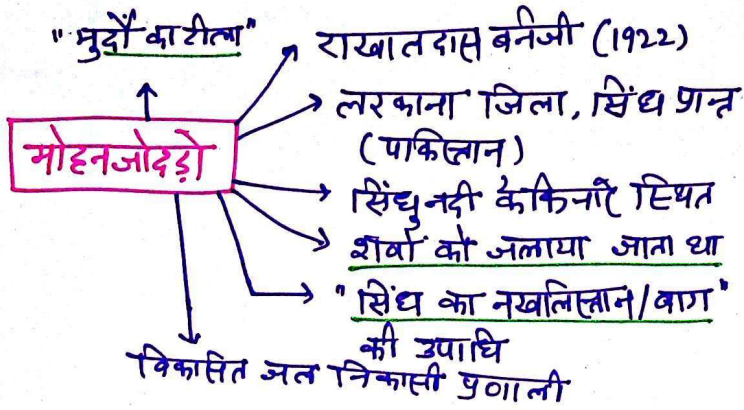 "मुर्दों का टीला"
राखालदास बर्नजी (1922)
लरकाना जिला, सिंध प्रान्त
(पाकिस्तान)
मोहनजोदड़ो
सिंधु नदी के किनारे स्थित
शवों को जलाया जाता था
"सिंध का नखलिस्तान/बाग"
की उपाधि
विकसित जल निकासी प्रणाली